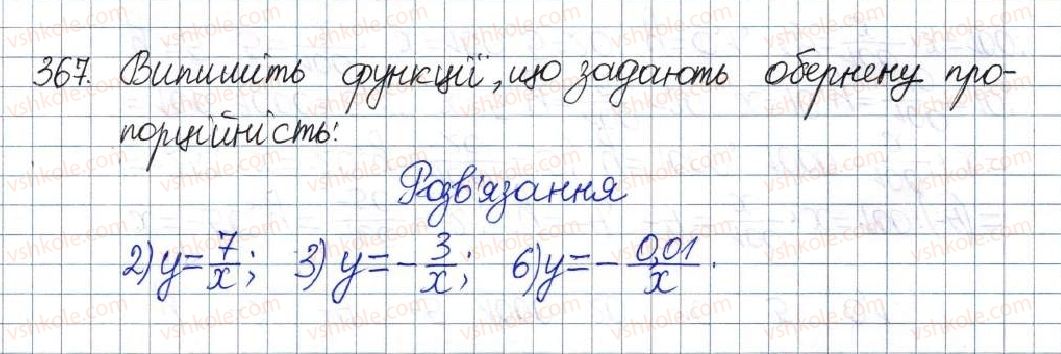 367. Випишіть функції, що задають обернену про-
порційність:
Розв'язання
2) y = 7/x; 3) y = - 3/x; 6) y = - 0,01/x.